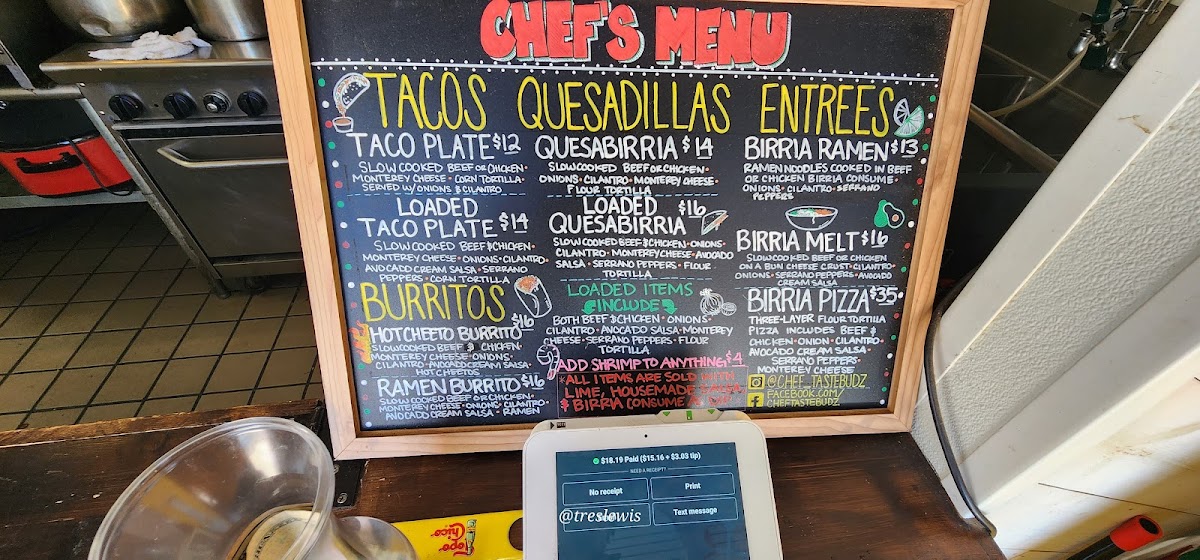 CHEF'S MENU
TACOS
TACO PLATE $12
SLOW COOKED BEEF OR CHICKEN•
MONTEREY CHEESE• CORN TORTILLA•
SERVED W/ONIONS & CILANTRO
LOADED
TACO PLATE $14
SLOW COOKED BEEF & CHICKEN•
MONTEREY CHEESE•ONIONS•CILANTRO•
AVOCADO CREAM SALSA•SERRANO
PEPPERS•CORN TORTILLA
BURRITOS
HOT CHEETO BURRITO $16
SLOW COOKED BEEF & CHICKEN
MONTEREY CHEESE•ONIONS•
CILANTRO•AVOCADO CREAM SALSA•
HOT CHEETOS
RAMEN BURRITO $16
SLOW COOKED BEEF OR CHICKEN•
MONTEREY CHEESE•ONIONS•CILANTRO•
AVOCADO CREAM SALSA•RAMEN
QUESADILLAS
QUESABIRRIA $14
SLOW COOKED BEEF OR CHICKEN•
ONIONS•CILANTRO•MONTEREY CHEESE•
FLOUR TORTILLA
LOADED
QUESABIRRIA $16
SLOW COOKED BEEF & CHICKEN•ONIONS•
CILANTRO•MONTEREY CHEESE•AVOCADO
SALSA•SERRANO PEPPERS•FLOUR
TORTILLA
LOADED ITEMS
INCLUDE
BOTH BEEF & CHICKEN•ONIONS•
CILANTRO•AVOCADO SALSA•MONTEREY
CHEESE•SERRANO PEPPERS•FLOUR
TORTILLA
ADD SHRIMP TO ANYTHING $4
*ALL ITEMS ARE SOLD WITH
LIME, HOUSEMADE SALSA
& BIRRIA CONSUME
ENTREES
BIRRIA RAMEN $13
RAMEN NOODLES COOKED IN BEEF
OR CHICKEN BIRRIA CONSUME•
ONIONS•CILANTRO•SERRANO
PEPPERS
BIRRIA MELT $16
SLOW COOKED BEEF OR CHICKEN
ON A BUN CHEESE CRUST•CILANTRO•
ONIONS•SERRANO PEPPERS•AVOCADO
CREAM SALSA
BIRRIA PIZZA $35
THREE-LAYER FLOUR TORTILLA
PIZZA INCLUDES BEEF &
CHICKEN•ONION•CILANTRO•
AVOCADO CREAM SALSA•
SERRANO PEPPERS•
MONTEREY CHEESE
@CHEF_TASTEBUDZ
FACEBOOK.COM/
CHEFTASTEBUDZ
$18.19 Paid ($15.16 + $3.03 tip)
NEED A RECEIPT?
No receipt
Print
Text message
@treslewis
Topo
Chico